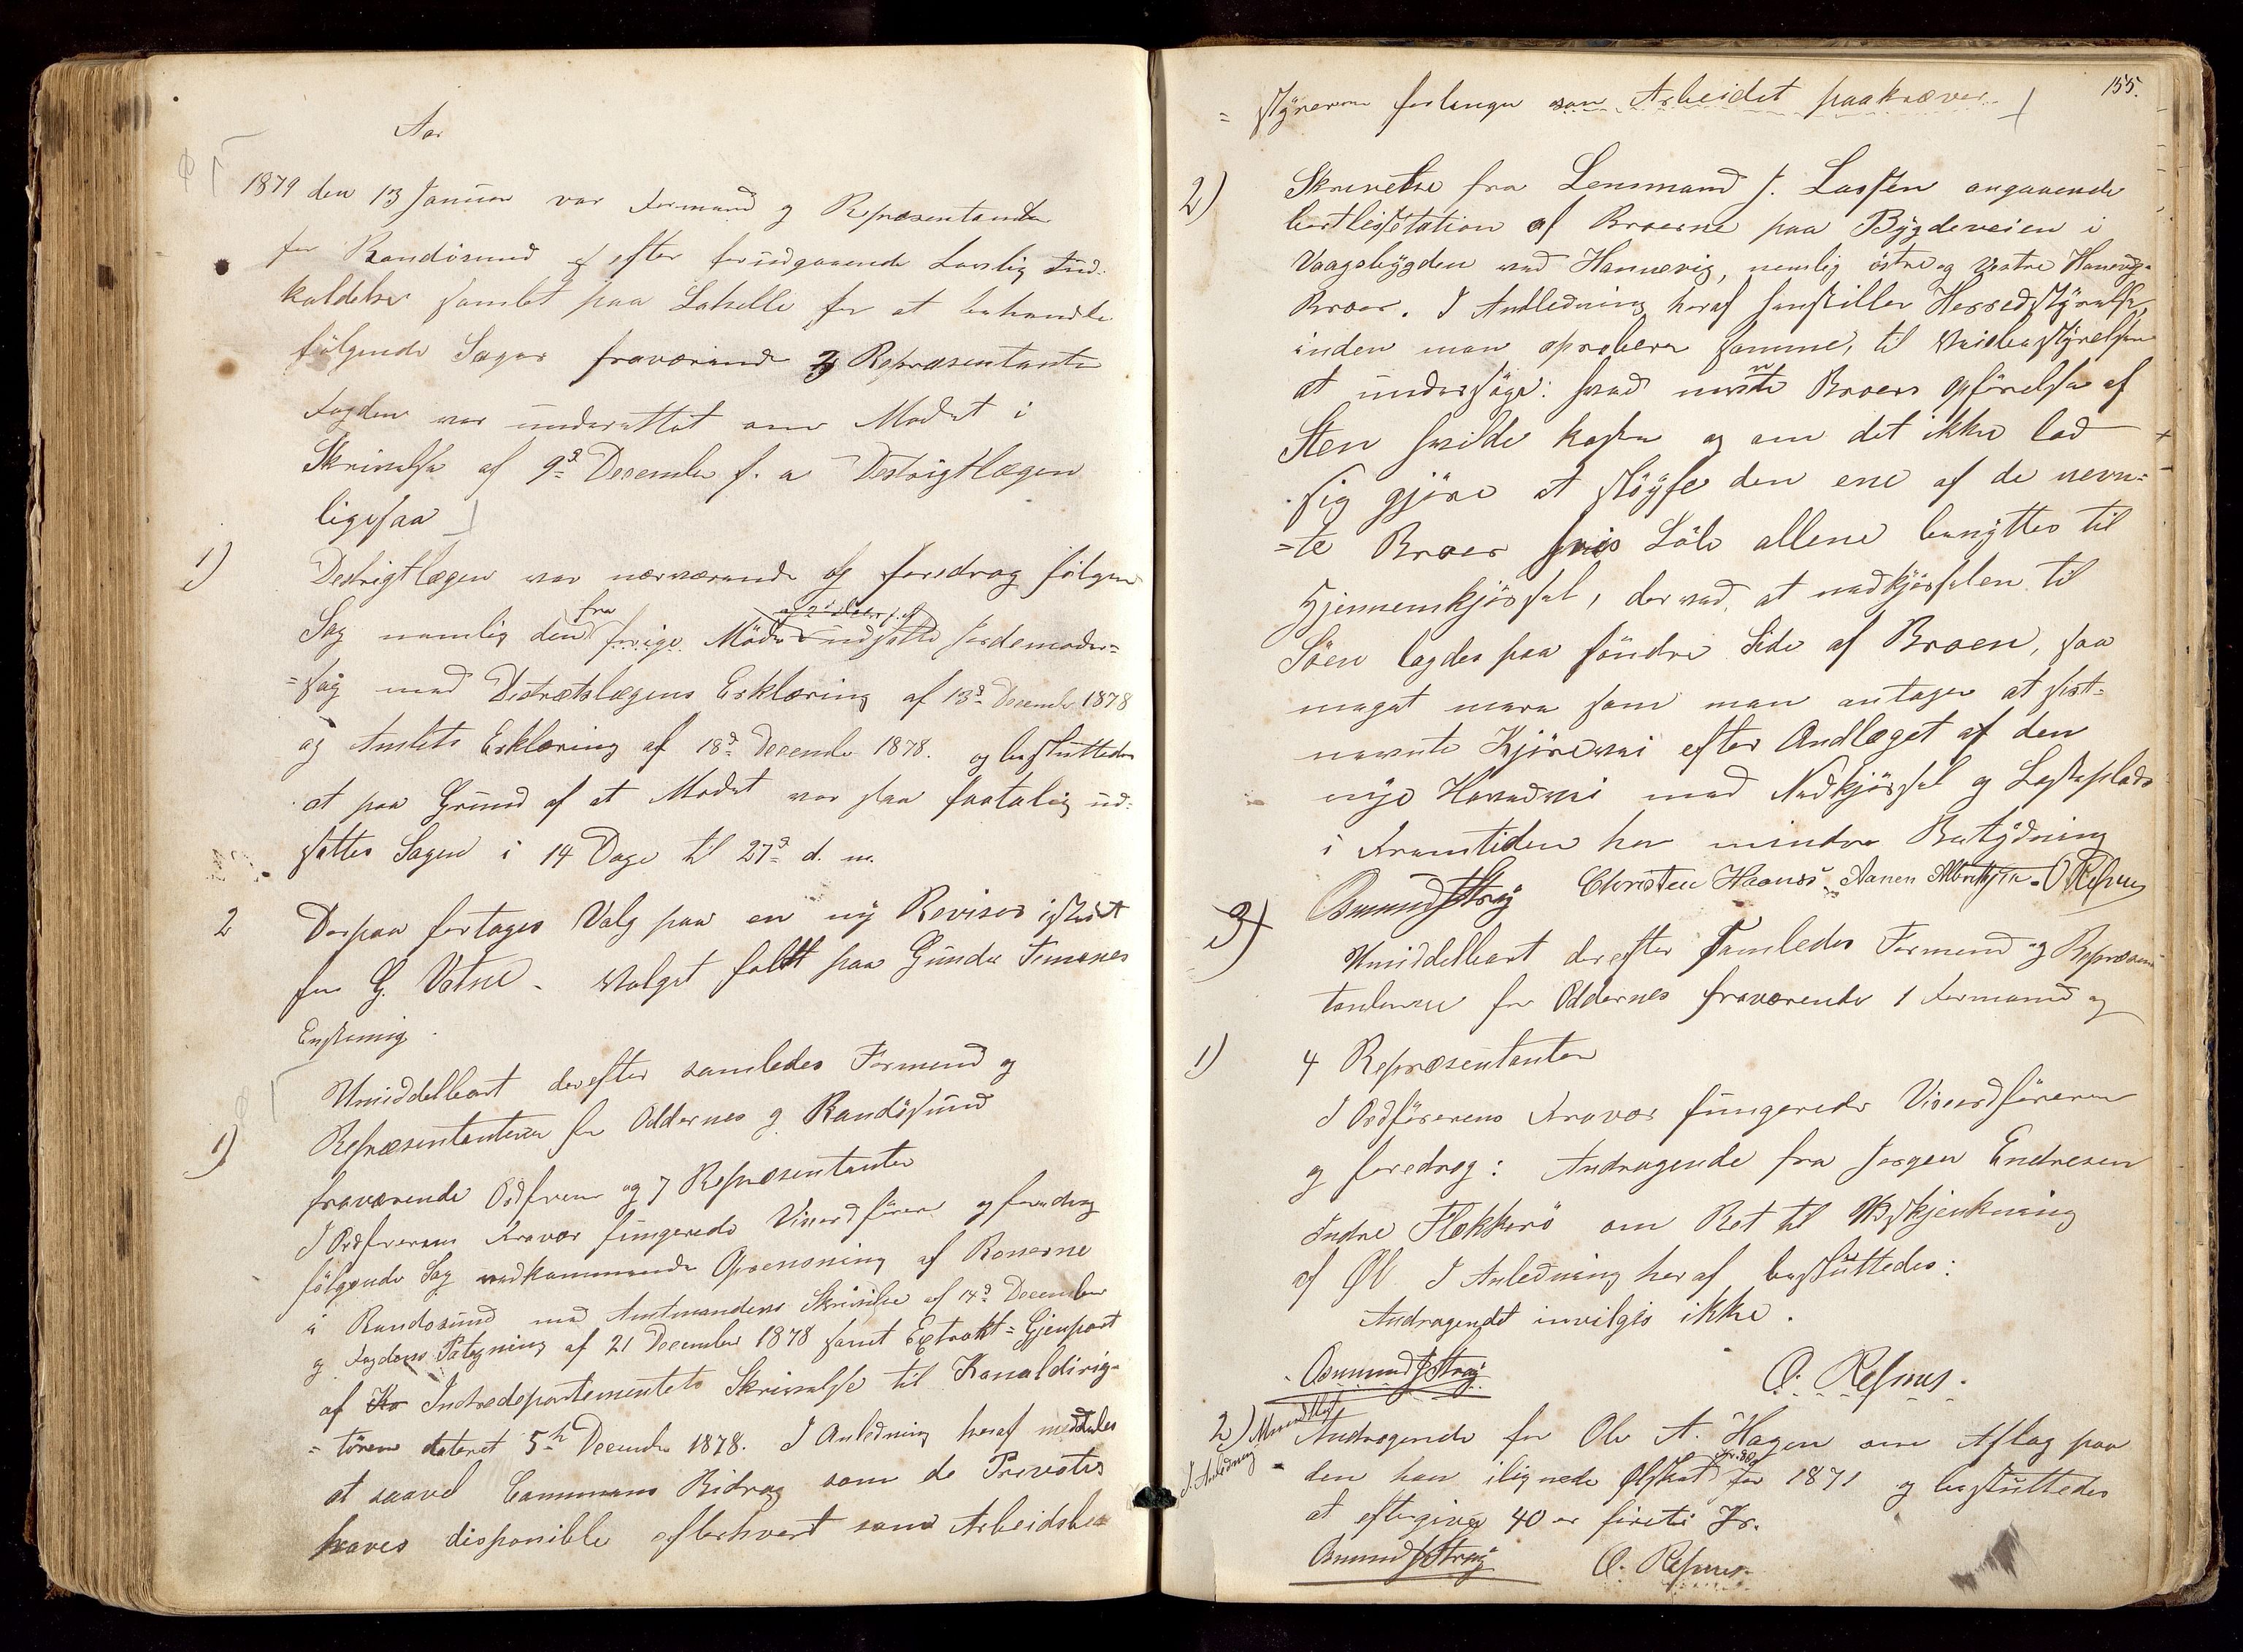 Aar
1879 den 13 Januar var Formænd og Repræsentanter
for Randøsund efter forudgaaende Lovlig Ind-
kaldelse samlet paa for at behandle
følgende Sager fraværende Repræsentanter
Fogden var underrettet om Mødet i
Skrivelse af 9d December f. a Destrigtlægen
ligesaa
1) Destrigtlægen var nærværende og foredrog følgende
Sag nemlig den fra forige Møde udsatte Jordemoder-
=sag med Distrætslægens Erklæring af 13d December 1878
og Amtets Erklæring af 18d December 1878. og besluttedes
at paa Grund af at Mødet var saa faatalig ud-
sættes Sagen i 14 Dage til 27d d. m.
2 Derpaa fortoges Valg paa en ny Revisor istedet
for G. Vatne. Valget faldt paa Gunder Timenes
Enstemig.
Umiddelbart derefter samledes Formænd og
1) Repræsentanterne for Oddernes og Randøsund
fraværende Ordføreren og 7 Repræsentanter
I Ordførerens Fravær fungerede Viseordfører og foredrog
følgende Sag vedkommende Oprensning af
i Randøsund med Amtmandens Skrivelse af 14d December
og Fogdens Påtegning af 21 December 1878 samt Extrakt-Gjenpart
af Indredepartementets Skrivelse til Kanaldirig-
=tøren dateret 5te December 1878. I Anledning heraf meddeles
at saavel Communens Bidrag som de Privates
haves disponible efterhvert som Arbeidsbe-
155.
=styreren forlanger som Arbeidet paakræver.
2) Skrivelse fra Lensmand J. Lassen angaaende
bortlisitation af Broerne paa Bygdeveien i
Vaagsbygden ved Hannevig, nemlig østre og Vestre Hanevig-
Broer. I Anledning heraf henstiller Herredstyrelsen,
inden man aproberer samme, til Veibestyrelsen
at undersøge: hvad nevnte Broers opførelse af
Sten vilde koste og om det ikke lod
sig gjøre at sløyfe den ene af de nevn-
=te Broer hvis Løb allene benyttes til
Gjennemkjørsel, derved, at nedkjørselen til
Søen lagdes paa søndre Side af Broen, saa
meget mere som man antager at sist-
nevnte Kjørevei efter Andlæget af den
nye Hovedvei med Nedkjørsel og Losseplads
i Fremtiden har mindre Betydning
Osmund Stray Christen Haanes Aanen Albretsen O Refsnes
3) Umiddelbart derefter samledes Formænd og Repræsen-
tanterne for Oddernes fraværende 1 Formand og
1) 4 Repræsentanter
I Ordførerens Fravær fungerede Viseordføreren
og foredrog: Andragende fra Jørgen Endresen
Indre Flekkerø om Ret til Udskjenkning
af Øl I Anledning heraf besluttedes:
Andragendet invilges ikke.
Osmund J Stray O. Refsnes.
2) Andragende for Ole A. Hagen om Aflag paa
I Anledning
den ham ilignede Ølskat for 1871 og besluttedes
at eftergive 40 er fireti Kr.
Osmund J Stray O. Refsnes.